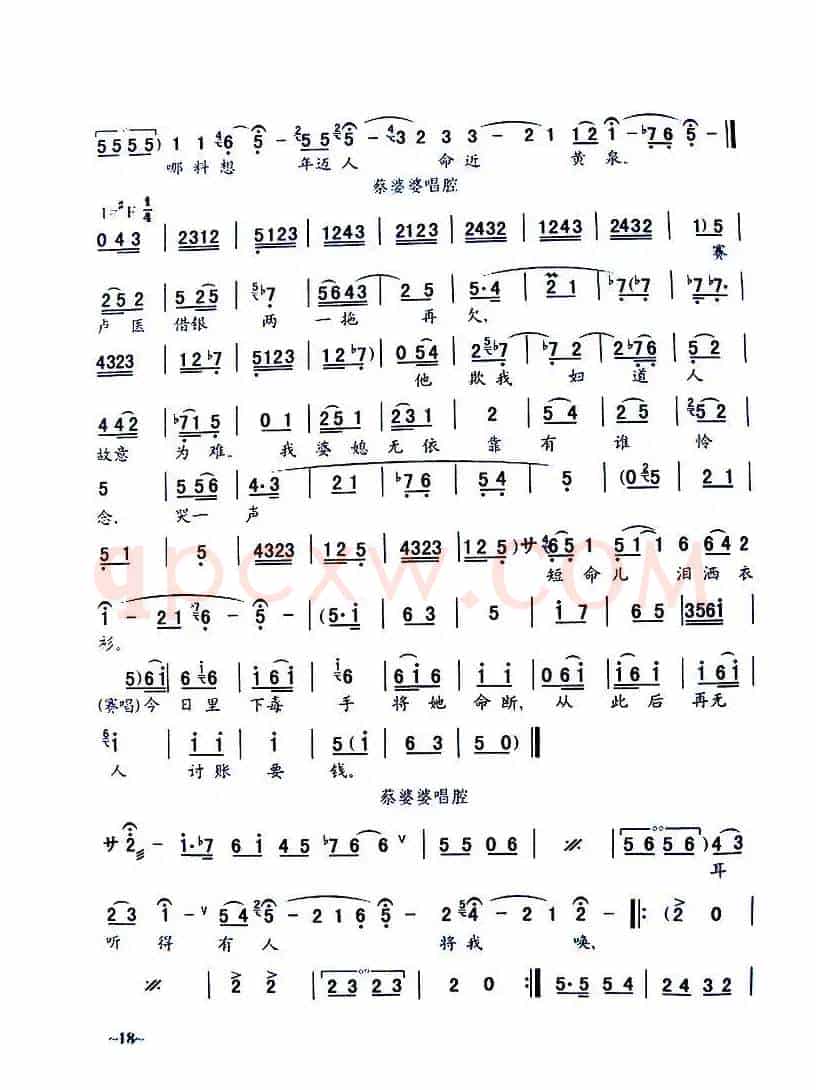 5555) 1 1 ⁴6 5 – ²5 5 ²5 – ⁴3 2 3 3 – 2 1 1 2 1 – ♭7 6 5 – ‖
哪料想 年迈人 命近 黄泉.
蔡婆婆唱腔
1=♯F 1/4
0 4 3 | 2312 | 5123 | 1243 | 2123 | 2432 | 1243 | 2432 | 1) 5 |
赛
2 5 2 | 5 2 5 | ⁵♭7 | 5643 | 2 5 | 5·4 | 2 1 | ♭7(♭7 | ♭7 ♭7· |
卢医 借银 两 一拖 再 欠,
4323 | 1 2 ♭7 | 5123 | 1 2 ♭7) | 0 5 4 | 2 ⁵♭7 | ♭7 2 | 2 ♭7 6 | 5 2 |
他 欺我 妇 道 人
4 4 2 | ♭7 1 5 | 0 1 | 2 5 1 | 2 3 1 | 2 | 5 4 | 2 5 | ²5 2 |
故意 为难. 我婆媳无依 靠有 谁 怜
5 | 5 5 6 | 4·3 | 2 1 | ♭7 6 | 5 4 | 5 | (0 ²5 | 2 1 |
念, 哭一 声
5 1 | 5 | 4323 | 1 2 5 | 4323 | 1 2 5) サ ⁴6 5 1 5 1 6 6 4 2
短命儿 泪洒衣
1 – 2 1 ⁷6 – 5 – (5·1 | 6 3 | 5 | 1 7 | 6 5 | 3561 |
衫。
5) 6 1 | 6 ¹6 | 1 6 1 | ¹6 | 6 1 6 | 1 1 | 0 6 1 | 1 6 1 | 1 1 |
(赛唱)今 日里 下毒 手 将她 命断, 从 此后 再无
⁶1 | 1 1 | 1 | 5 (1 | 6 3 | 5 0) ‖
人 讨账 要 钱。
蔡婆婆唱腔
サ 2 – 1·♭7 6 1 4 5 ♭7 6 6 ∨ | 5 5 0 6 | 𝄎 | 5 6 5 6) 4 3
耳
2 3 1 – ∨ 5 4 ²5 – 2 1 6 5 – 2 ⁵4 – 2 1 2 – ‖: (2 0 |
听得 有人 将我 唤,
𝄎 | 2 2 | 2 3 2 3 | 2 0 :‖ 5·5 5 4 | 2 4 3 2 |
~18~
qpcxw.COM